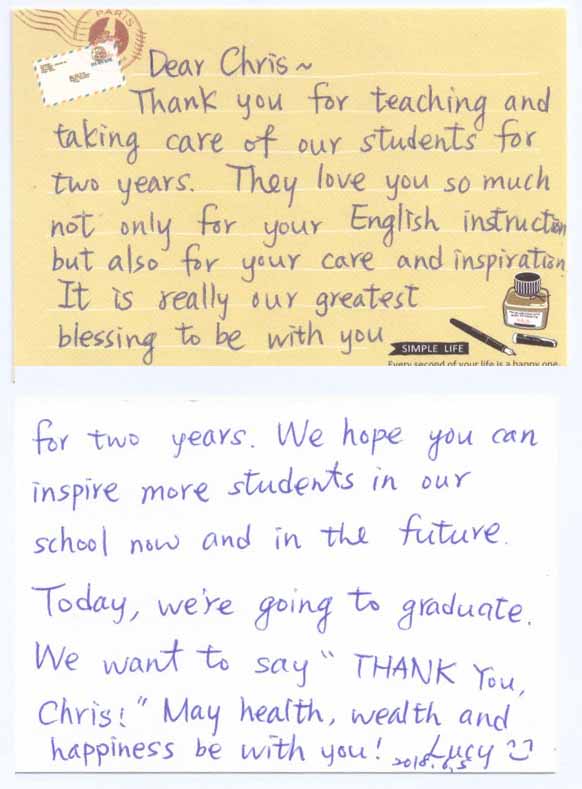 PARIS
Dear Chris~
Thank you for teaching and
taking care of our students for
two years. They love you so much
not only for your English instruction
but also for your care and inspiration.
It is really our greatest
blessing to be with you
SIMPLE LIFE
Every second of your life is a happy one.
for two years. We hope you can
inspire more students in our
school now and in the future.
Today, we're going to graduate.
We want to say “ THANK You,
Chris! ” May health, wealth and
happiness be with you! Lucy
2018.6.5